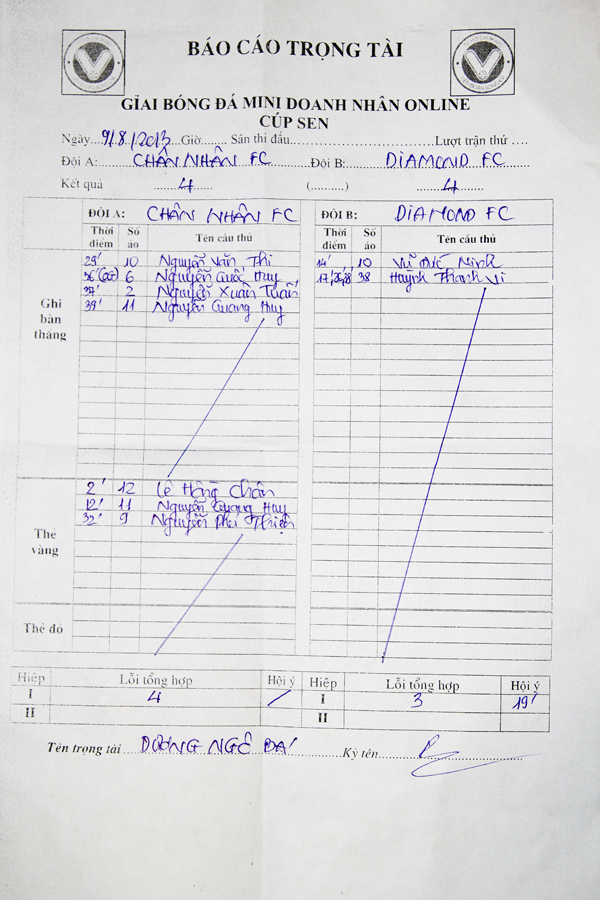 BÁO CÁO TRỌNG TÀI
GIẢI BÓNG ĐÁ MINI DOANH NHÂN ONLINE
CÚP SEN
Ngày 9/8/2013 Giờ ...... Sân thi đấu ...... Lượt trận thứ ....
Đội A: CHÂN NHÂN FC Đội B: DIAMOND FC
Kết quả 4 (..........) 4
ĐỘI A: CHÂN NHÂN FC ĐỘI B: DIAMOND FC
Thời điểm Số áo Tên cầu thủ Thời điểm Số áo Tên cầu thủ
Ghi bàn thắng
29' 10 Nguyễn Văn Thi 14' 10 Vũ Đức Ninh
6 Nguyễn Quốc Huy 38 Huỳnh Thanh Vi
37' 2 Nguyễn Xuân Tuấn
39' 11 Nguyễn Quang Huy
Thẻ vàng
2' 12 Lê Hồng Chân
12' 11 Nguyễn Quang Huy
32' 9 Nguyễn Phú Thiện
Thẻ đỏ
Hiệp Lỗi tổng hợp Hội ý Hiệp Lỗi tổng hợp Hội ý
I 4 / I 3 19'
II II
Tên trọng tài DƯƠNG NGÔ Ký tên